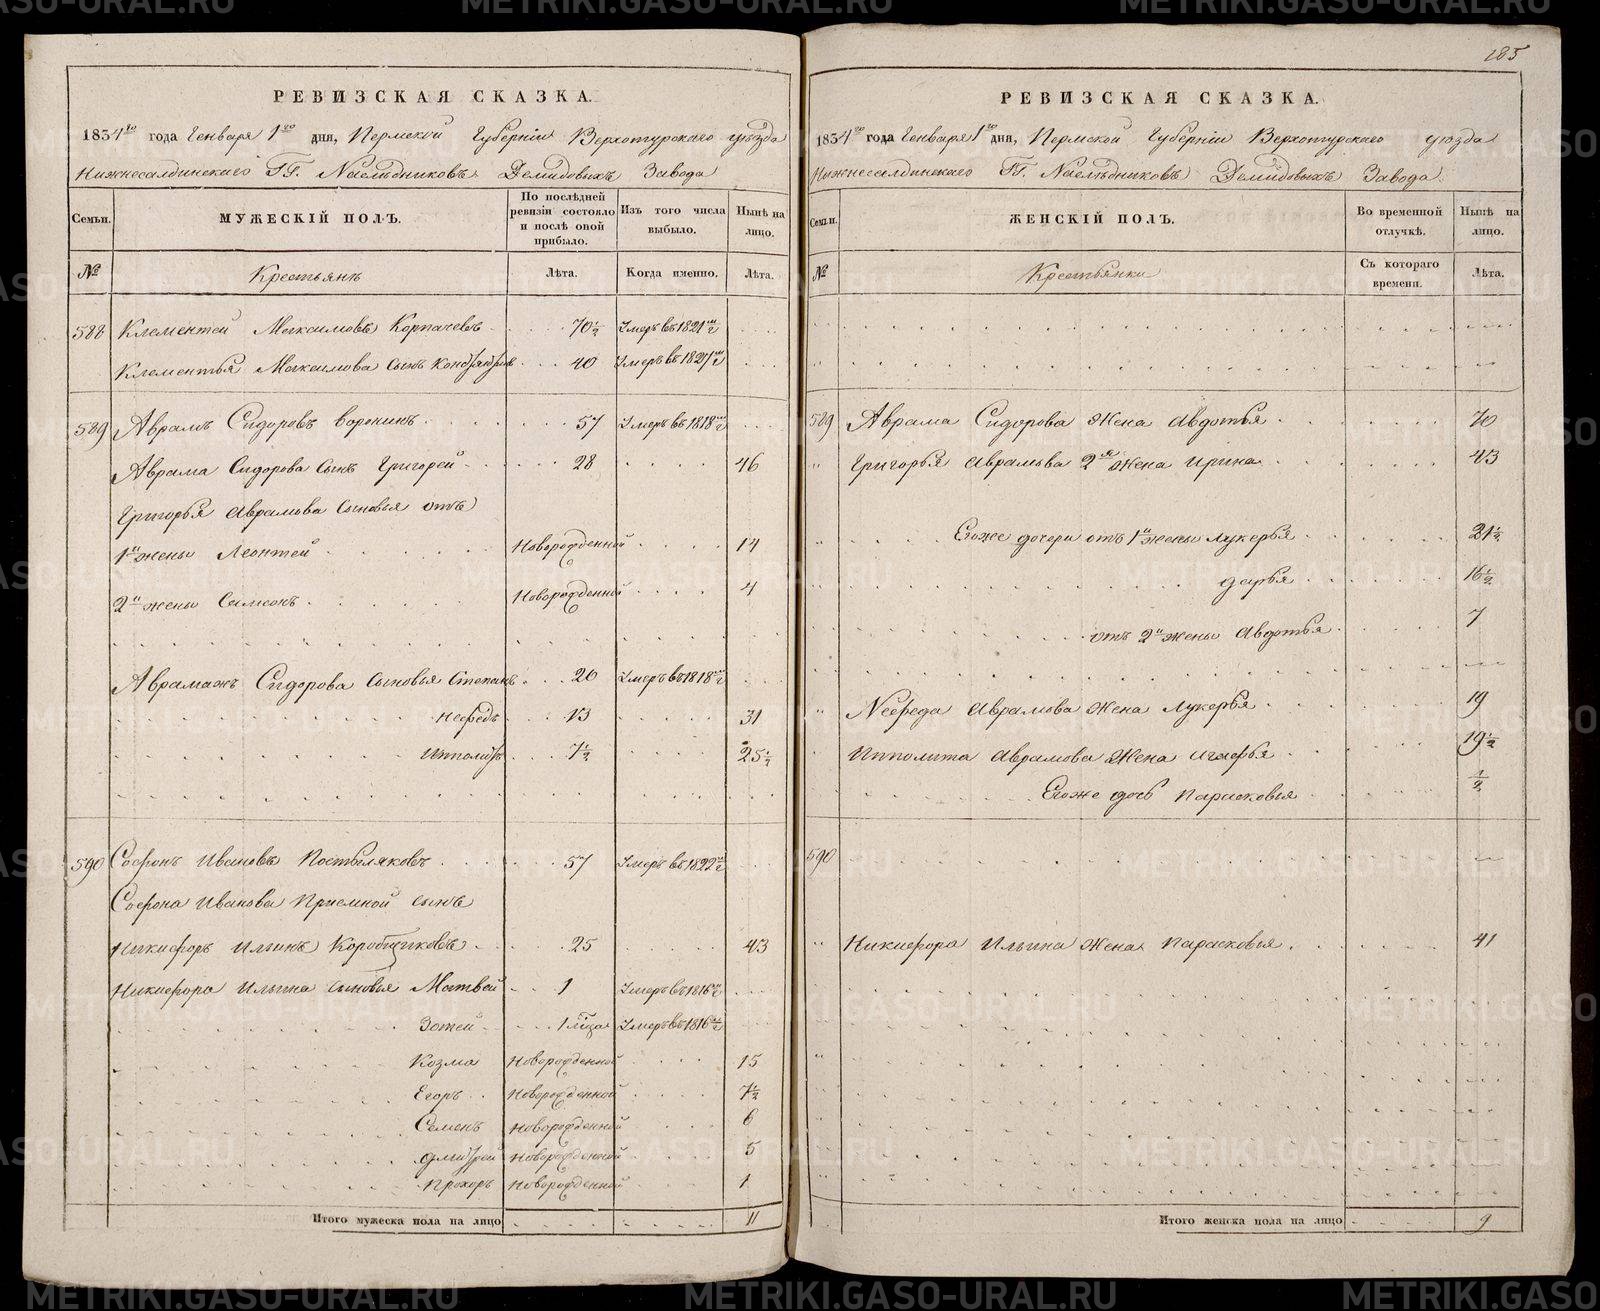 185
РЕВИЗСКАЯ СКАЗКА.
1834го года Генваря 1го дня, Пермской Губерніи Верхотурскаго уѣзда
Нижнесалдинскаго ГГ. Наслѣдниковъ Демидовыхъ Завода
Семьи. МУЖЕСКІЙ ПОЛЪ. По послѣдней ревизіи состояло и послѣ оной прибыло. Изъ того числа выбыло. Нынѣ на лицо.
№ Крестьянъ Лѣта. Когда именно. Лѣта.
588 Клементей Максимовъ Корпачевъ 70½ Умеръ въ 1821мъ г
Клементья Максимова сынъ 40 Умеръ въ 1827мъ г
589 Аврамъ Сидоровъ Воронинъ 57 Умеръ въ 1818мъ г
Аврама Сидорова сынъ Григорей 28 46
Григорья Аврамова сыновья отъ
1й жены Леонтей Новорожденной 14
2й жены Симеонъ Новорожденной 4
Аврамажъ Сидорова сыновья Степанъ 20 Умеръ въ 1818мъ г
Нефедъ 13 31
Ипполитъ 7½ 25½
590 Софонъ Ивановъ Постыляковъ 57 Умеръ въ 1822мъ г
Софона Иванова приемной сынъ
Никифоръ Ильинъ Коробщиковъ 25 43
Никифора Ильина сыновья Матвей 1 Умеръ въ 1816мъ г
Зотей 1 мѣся Умеръ въ 1816мъ г
Козма Новорожденной 15
Егоръ Новорожденной 7½
Семенъ Новорожденной 6
Дмитрей Новорожденной 5
Прохоръ Новорожденной 1
Итого мужеска пола на лицо 11
РЕВИЗСКАЯ СКАЗКА.
1834го года Генваря 1го дня, Пермской Губерніи Верхотурскаго уѣзда
Нижнесалдинскаго ГГ. Наслѣдниковъ Демидовыхъ Завода.
Семьи. ЖЕНСКІЙ ПОЛЪ. Во временной отлучкѣ. Нынѣ на лицо.
№ Крестьянки Съ котораго времени. Лѣта.
589 Аврама Сидорова жена Авдотья 70
Григорья Аврамова 2я жена Ирина 43
Егоже дочери отъ 1й жены Лукерья 21½
Дарья 16½
отъ 2й жены Авдотья 7
Нефеда Аврамова жена Лукерья 19
Ипполита Аврамова жена 19½
Егоже дочь Парасковья ½
590
Никифора Ильина жена Парасковья 41
Итого женска пола на лицо 9
METRIKI.GASO-URAL.RU